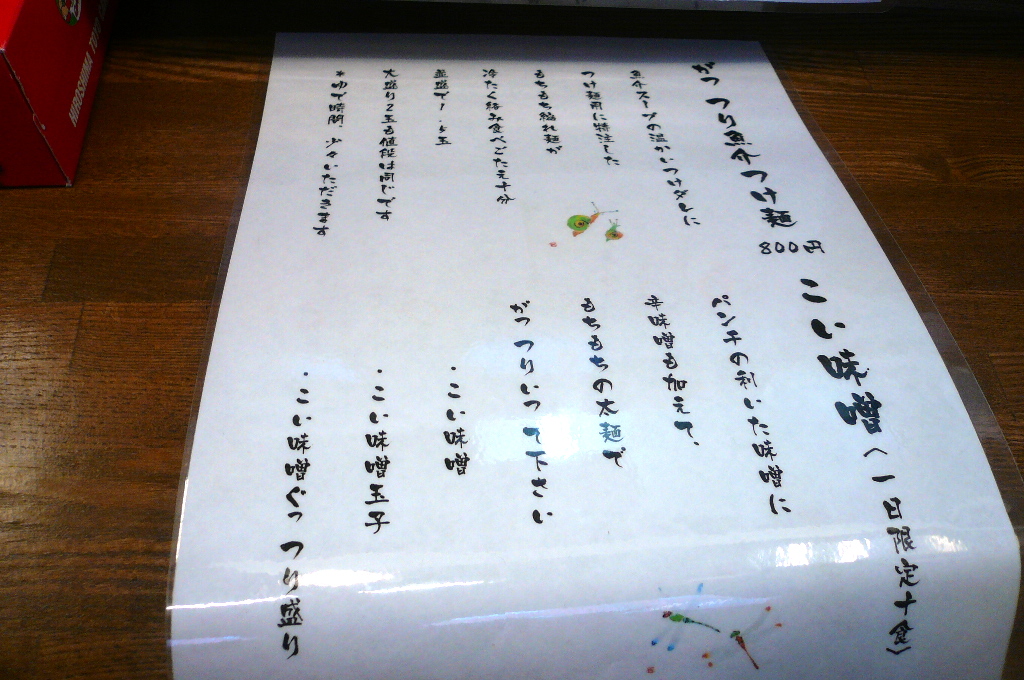 がっつり魚介つけ麺
800円
魚介スープの温かいつけダレに
つけ麺用に特注した
もちもち縮れ麺が
冷たく絡み食べごたえ十分
並盛で1.5玉
大盛り2玉も値段は同じです
*ゆで時間、少々いただきます
こい味噌〈一日限定十食〉
パンチの利いた味噌に
辛味噌も加えて、
もちもちの太麺で
がっつりいって下さい
・こい味噌
・こい味噌玉子
・こい味噌ぐっつり盛り
HIROSHIMA TOYO